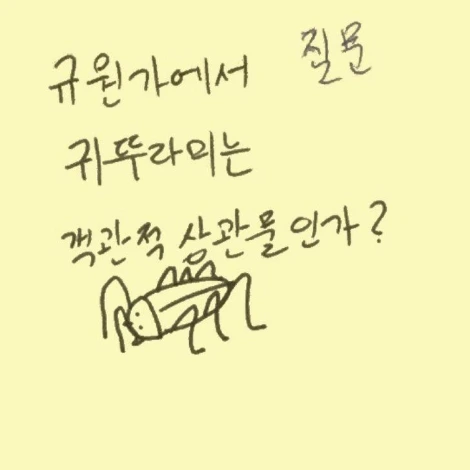 질문
규원가에서
귀뚜라미는
객관적 상관물인가?